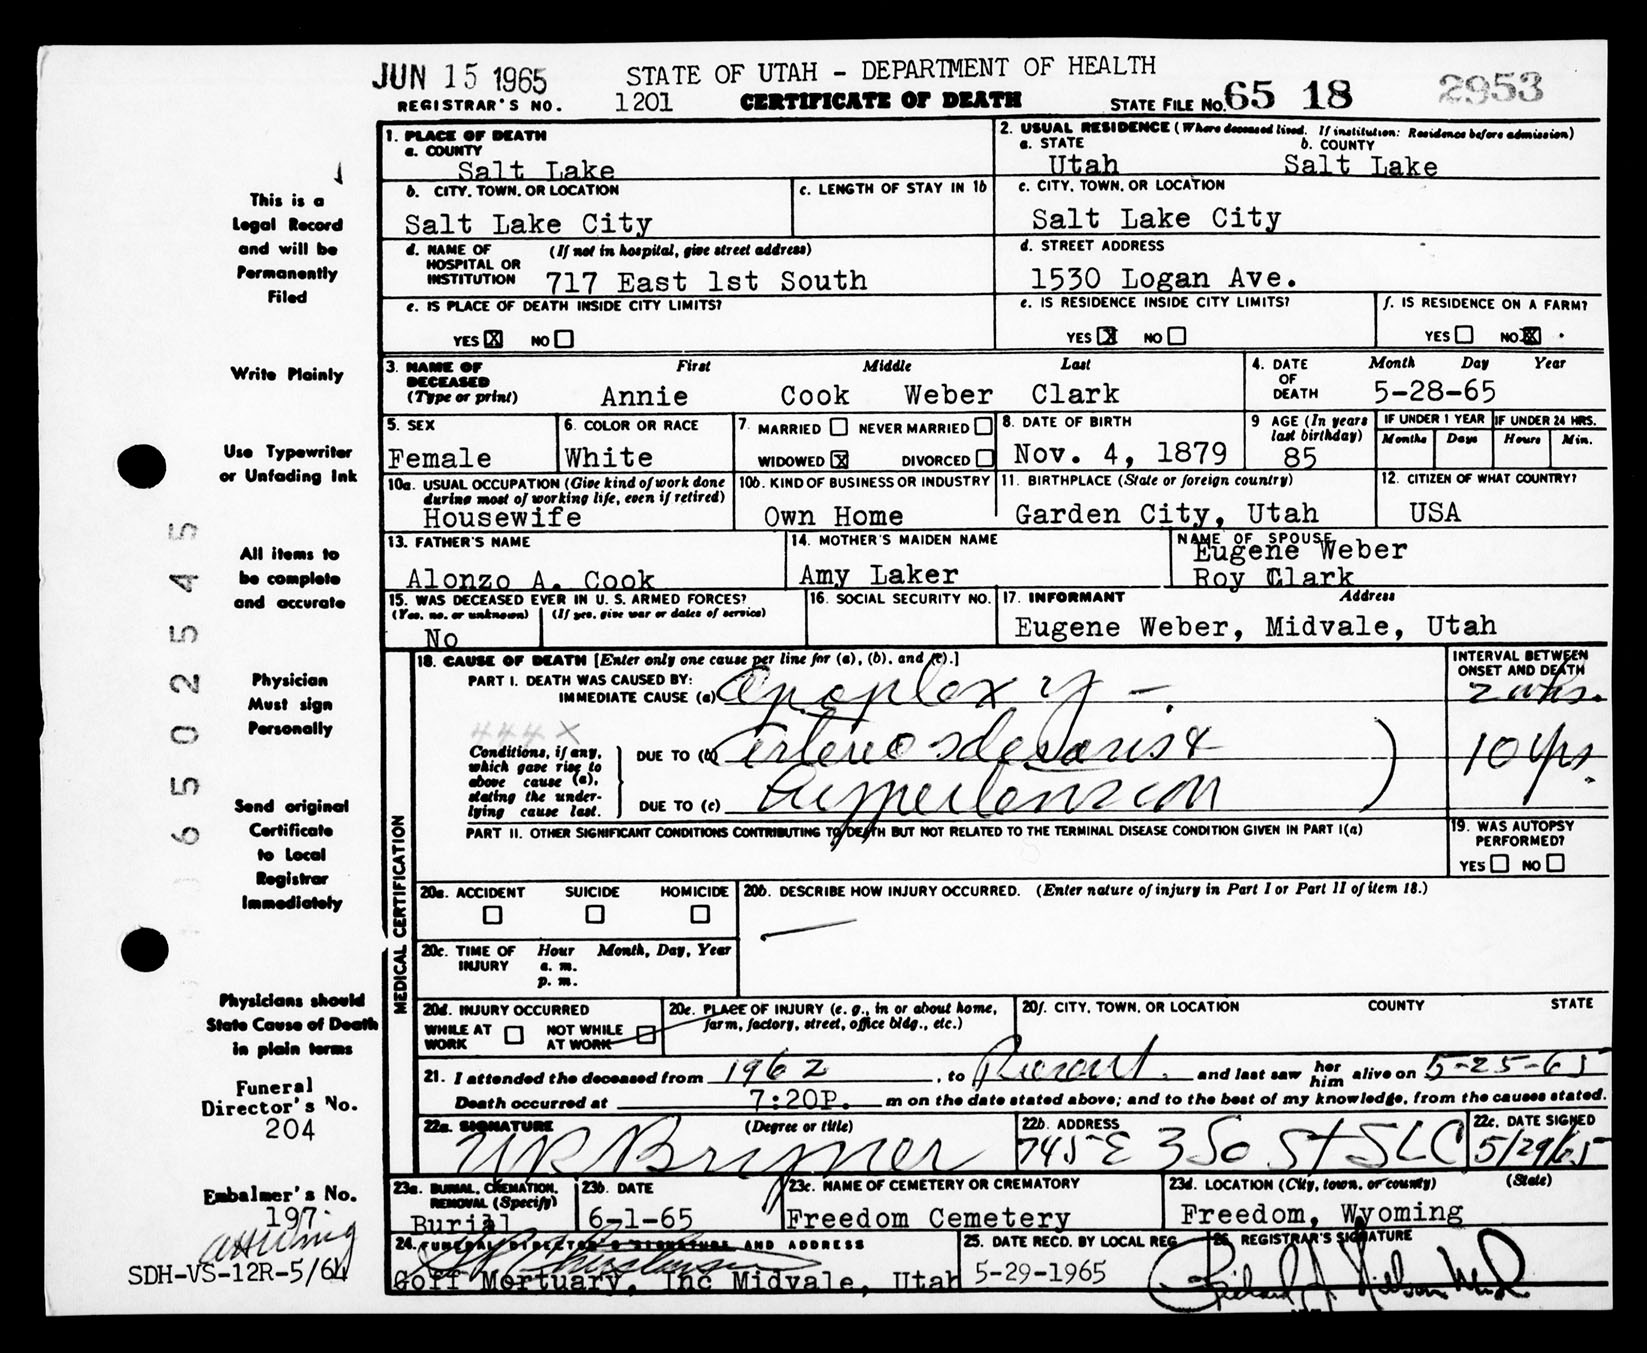 JUN 15 1965 STATE OF UTAH - DEPARTMENT OF HEALTH
REGISTRAR'S NO. 1201 CERTIFICATE OF DEATH STATE FILE NO. 65 18 2953
1. PLACE OF DEATH
a. COUNTY
Salt Lake
2. USUAL RESIDENCE (Where deceased lived. If institution: Residence before admission)
a. STATE b. COUNTY
Utah Salt Lake
b. CITY, TOWN, OR LOCATION
Salt Lake City
c. LENGTH OF STAY IN 1b
c. CITY, TOWN, OR LOCATION
Salt Lake City
d. NAME OF HOSPITAL OR INSTITUTION (If not in hospital, give street address)
717 East 1st South
d. STREET ADDRESS
1530 Logan Ave.
e. IS PLACE OF DEATH INSIDE CITY LIMITS?
YES X NO
e. IS RESIDENCE INSIDE CITY LIMITS?
YES X NO
f. IS RESIDENCE ON A FARM?
YES NO X
3. NAME OF DECEASED (Type or print) First Middle Last
Annie Cook Weber Clark
4. DATE OF DEATH Month Day Year
5-28-65
5. SEX
Female
6. COLOR OR RACE
White
7. MARRIED NEVER MARRIED
WIDOWED X DIVORCED
8. DATE OF BIRTH
Nov. 4, 1879
9 AGE (In years last birthday)
85
IF UNDER 1 YEAR IF UNDER 24 HRS.
Months Days Hours Min.
10a. USUAL OCCUPATION (Give kind of work done during most of working life, even if retired)
Housewife
10b. KIND OF BUSINESS OR INDUSTRY
Own Home
11. BIRTHPLACE (State or foreign country)
Garden City, Utah
12. CITIZEN OF WHAT COUNTRY?
USA
13. FATHER'S NAME
Alonzo A. Cook
14. MOTHER'S MAIDEN NAME
Amy Laker
NAME OF SPOUSE
Eugene Weber
Roy Clark
15. WAS DECEASED EVER IN U. S. ARMED FORCES?
(Yes, no, or unknown) (If yes, give war or dates of service)
No
16. SOCIAL SECURITY NO.
17. INFORMANT Address
Eugene Weber, Midvale, Utah
MEDICAL CERTIFICATION
18. CAUSE OF DEATH [Enter only one cause per line for (a), (b), and (c).]
INTERVAL BETWEEN ONSET AND DEATH
PART I. DEATH WAS CAUSED BY:
IMMEDIATE CAUSE (a) Apoplexy - 2 wks.
444 X
Conditions, if any, which gave rise to above cause (a), stating the underlying cause last.
DUE TO (b) Arteriosclerosis & 10 yrs.
DUE TO (c) Hypertension
PART II. OTHER SIGNIFICANT CONDITIONS CONTRIBUTING TO DEATH BUT NOT RELATED TO THE TERMINAL DISEASE CONDITION GIVEN IN PART I(a)
19. WAS AUTOPSY PERFORMED?
YES NO
20a. ACCIDENT SUICIDE HOMICIDE
20b. DESCRIBE HOW INJURY OCCURRED. (Enter nature of injury in Part I or Part II of item 18.)
20c. TIME OF INJURY Hour Month, Day, Year
a. m.
p. m.
20d. INJURY OCCURRED
WHILE AT WORK NOT WHILE AT WORK
20e. PLACE OF INJURY (e. g., in or about home, farm, factory, street, office bldg., etc.)
20f. CITY, TOWN, OR LOCATION COUNTY STATE
21. I attended the deceased from 1962, to Present. and last saw her him alive on 5-25-65
Death occurred at 7:20P. m on the date stated above; and to the best of my knowledge, from the causes stated.
22a. SIGNATURE (Degree or title)
22b. ADDRESS
745 E 3 So St SLC
22c. DATE SIGNED
5/29/65
23a. BURIAL, CREMATION, REMOVAL (Specify)
Burial
23b. DATE
6-1-65
23c. NAME OF CEMETERY OR CREMATORY
Freedom Cemetery
23d. LOCATION (City, town, or county) (State)
Freedom, Wyoming
24. FUNERAL DIRECTOR'S SIGNATURE AND ADDRESS
Goff Mortuary, Inc Midvale, Utah
25. DATE RECD. BY LOCAL REG.
5-29-1965
26. REGISTRAR'S SIGNATURE
This is a
Legal Record
and will be
Permanently
Filed
Write Plainly
Use Typewriter
or Unfading Ink
All items to
be complete
and accurate
Physician
Must sign
Personally
Send original
Certificate
to Local
Registrar
Immediately
Physicians should
State Cause of Death
in plain terms
Funeral
Director's No.
204
Embalmer's No.
197
SDH-VS-12R-5/64
65025545